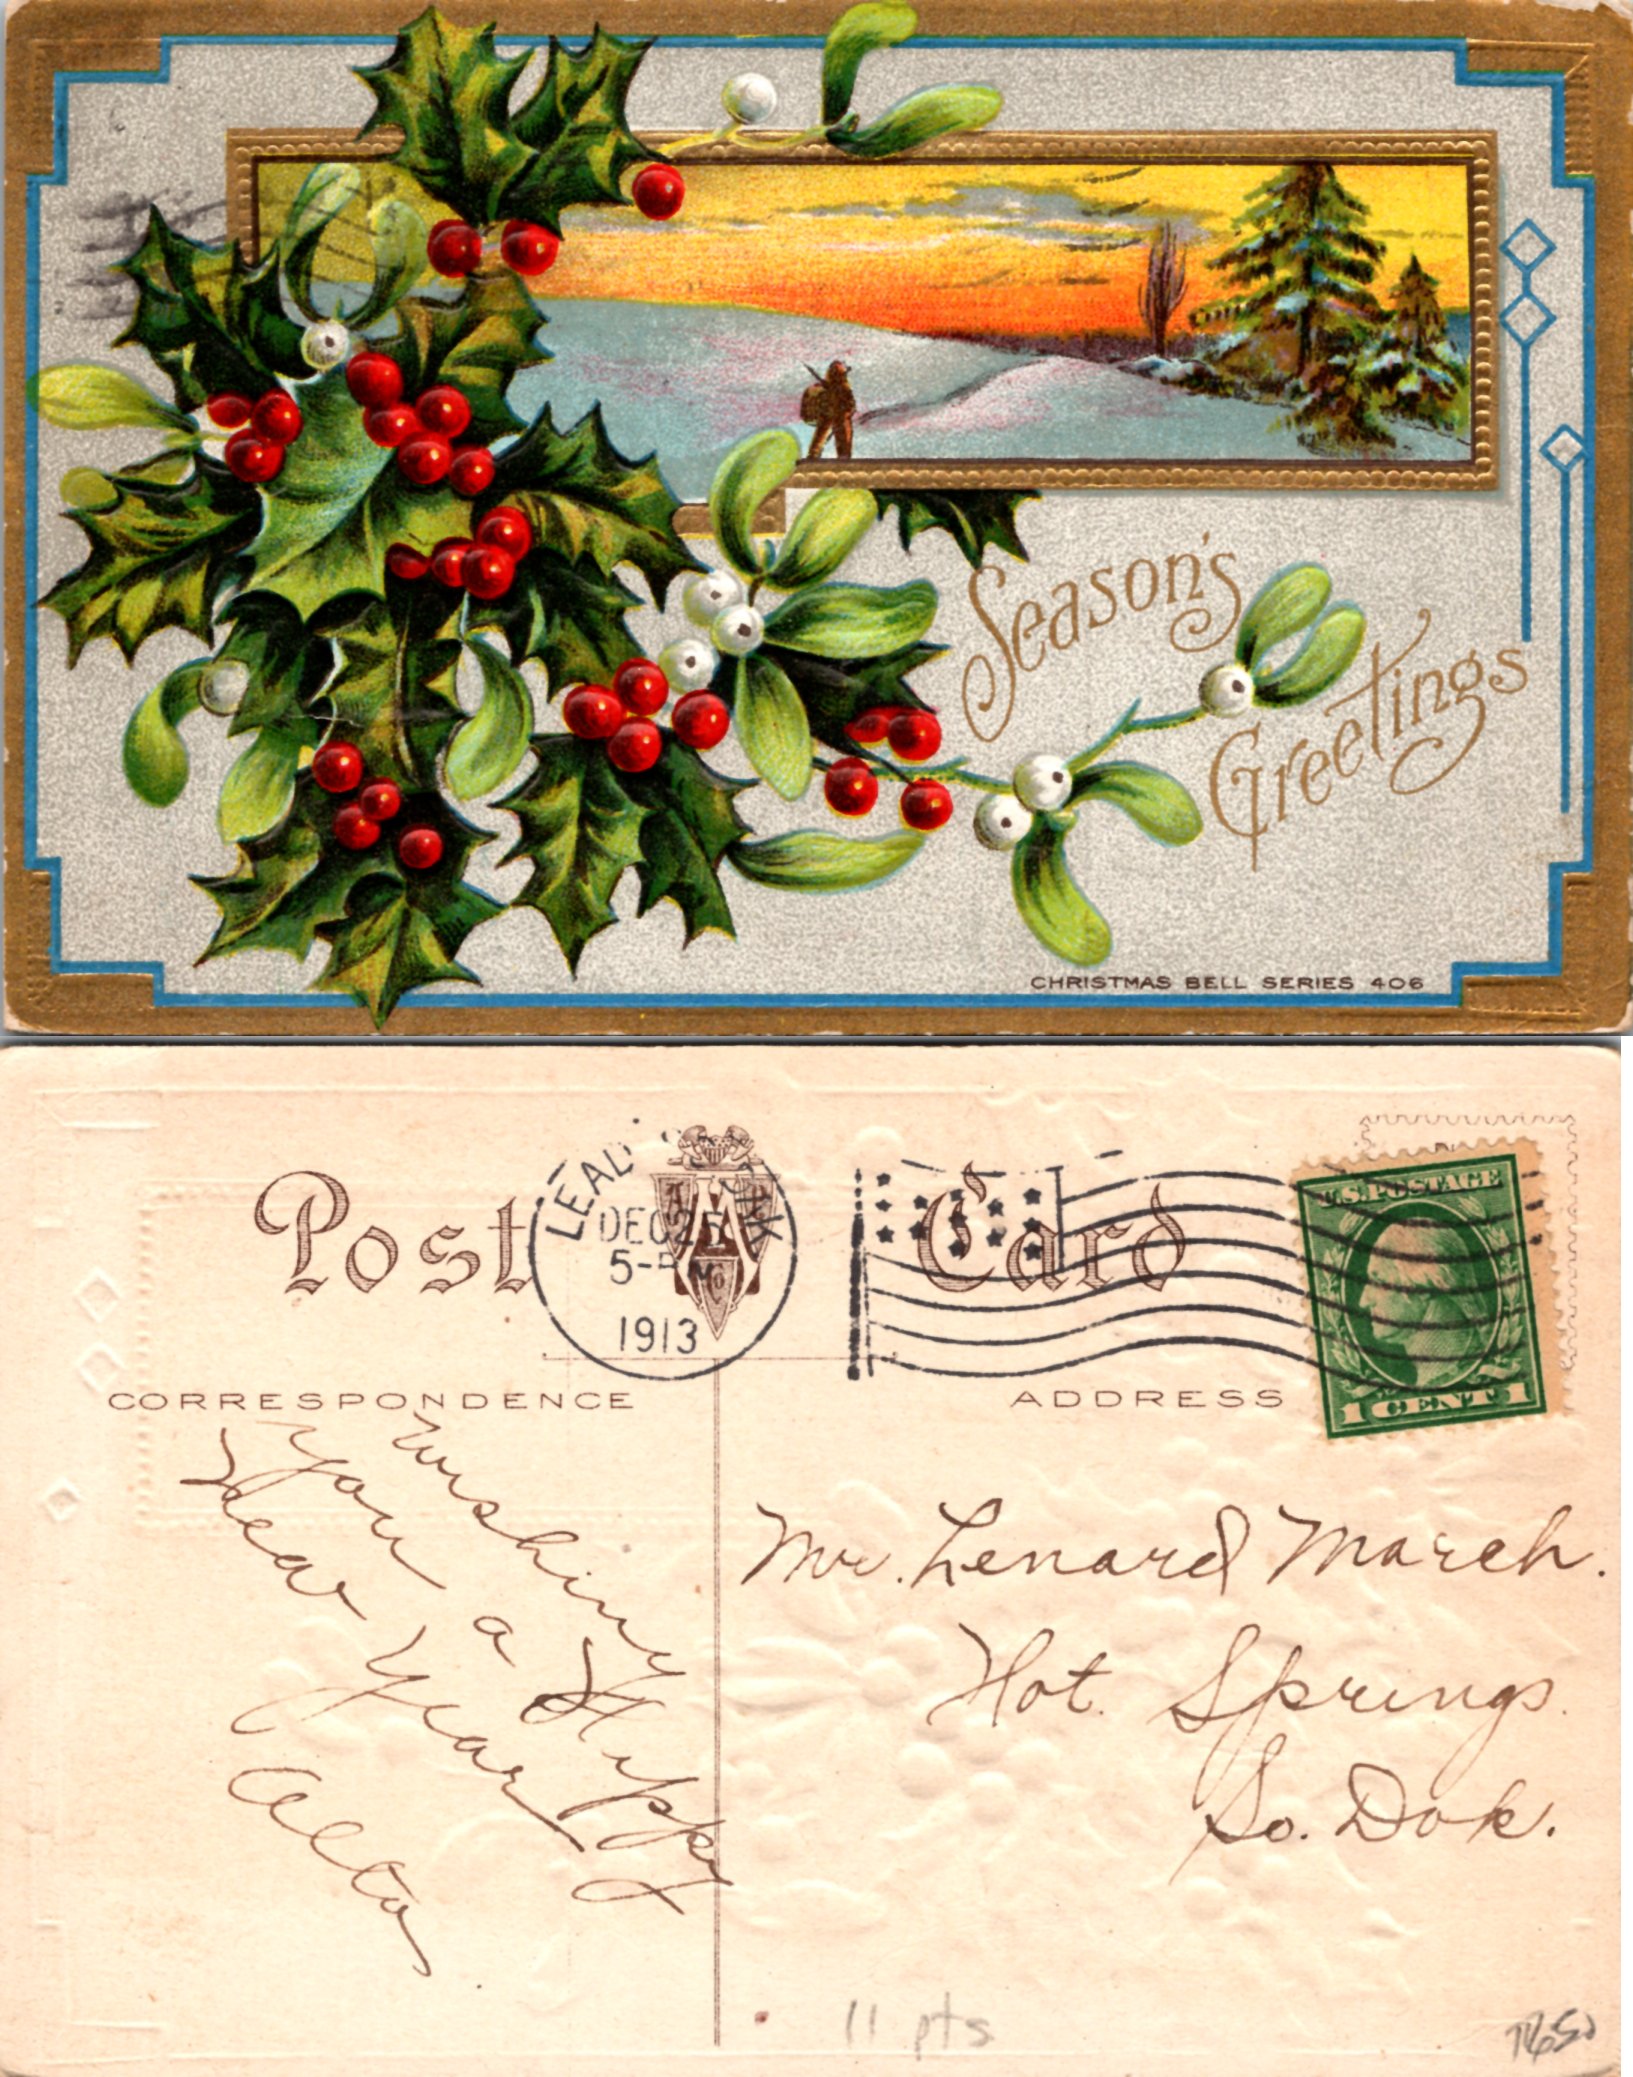 Season's
Greetings
CHRISTMAS BELL SERIES 406
Post Card
LEAD
DAK
DEC 25
5-PM
1913
U.S. POSTAGE
1 CENT 1
CORRESPONDENCE
ADDRESS
Wishing
You a Happy
New Year
Alta
Mr. Lenard March.
Hot Springs.
So. Dak.
11 pts